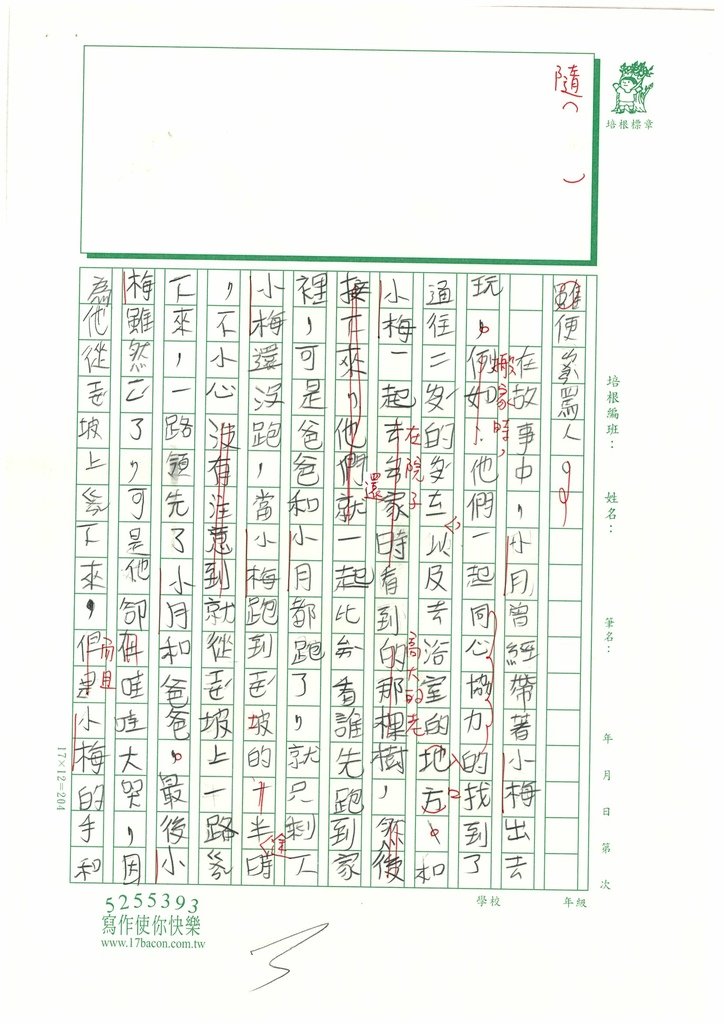 隨( )
培根標章
培根編班：
姓名：
筆名：
年 月 日 第 次
學校
年級
便爹罵人。
在故事中，小月曾經帶著小梅出去
玩，例如：他們一起同心協力的找到了
搬家時，
通往二多的多左以及去浴室的地方，和
入口
小梅一起去爸家時看到的那棵樹，然後
在院子
還
高大的老
接下來，他們就一起比賽看誰先跑到家
裡，可是爸爸和小月都跑了，就只剩下
小梅還沒跑，當小梅跑到走坡的十半時
途
，不小心沒有注意到就從走坡上一路爹
下來，一路領先了小月和爸爸，最後小
梅雖然已了，可是他卻哇哇大哭，因
為他從走坡上爹下來，但是小梅的手和
而且
17×12=204
5255393
寫作使你快樂
www.17bacon.com.tw
3